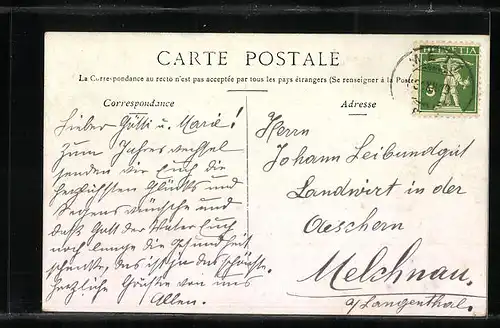 CARTE POSTALE
La Correspondance au recto n'est pas acceptée par tous les pays étrangers (Se renseigner à la Poste
Correspondance
Adresse
HELVETIA
5
Lieber Götti u. Marie!
Zum Jahreswechsel
senden wir Euch die
herzlichsten Glücks und
Segenswünsche und
daß Gott der Vater Euch
noch lange die Gesundheit
schenke, das ist ja das schönste.
Herzliche Grüße von uns
Allen.
Herrn
Johann Leibundgut
Landwirt in der
Aeschern
Melchnau.
a/Langenthal.